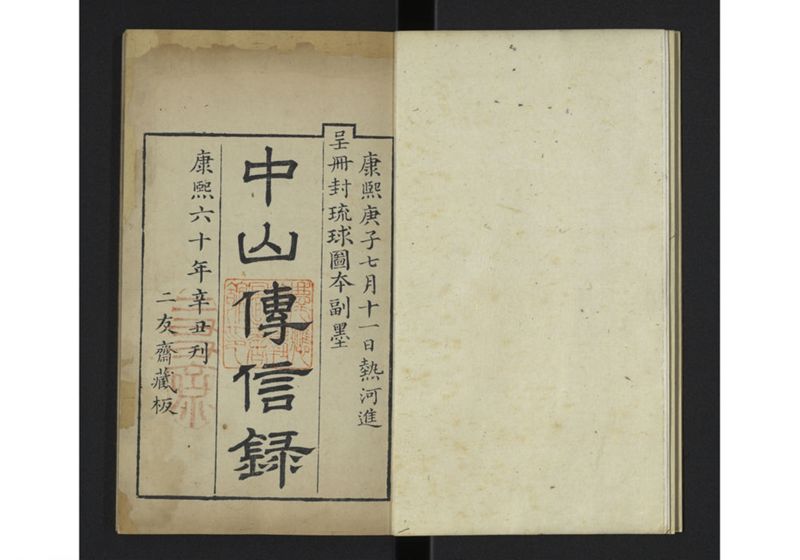 康熙庚子七月十一日熱河進
呈冊封琉球圖本副墨
中山傳信錄
康熙六十年辛丑刊
二友齋藏板